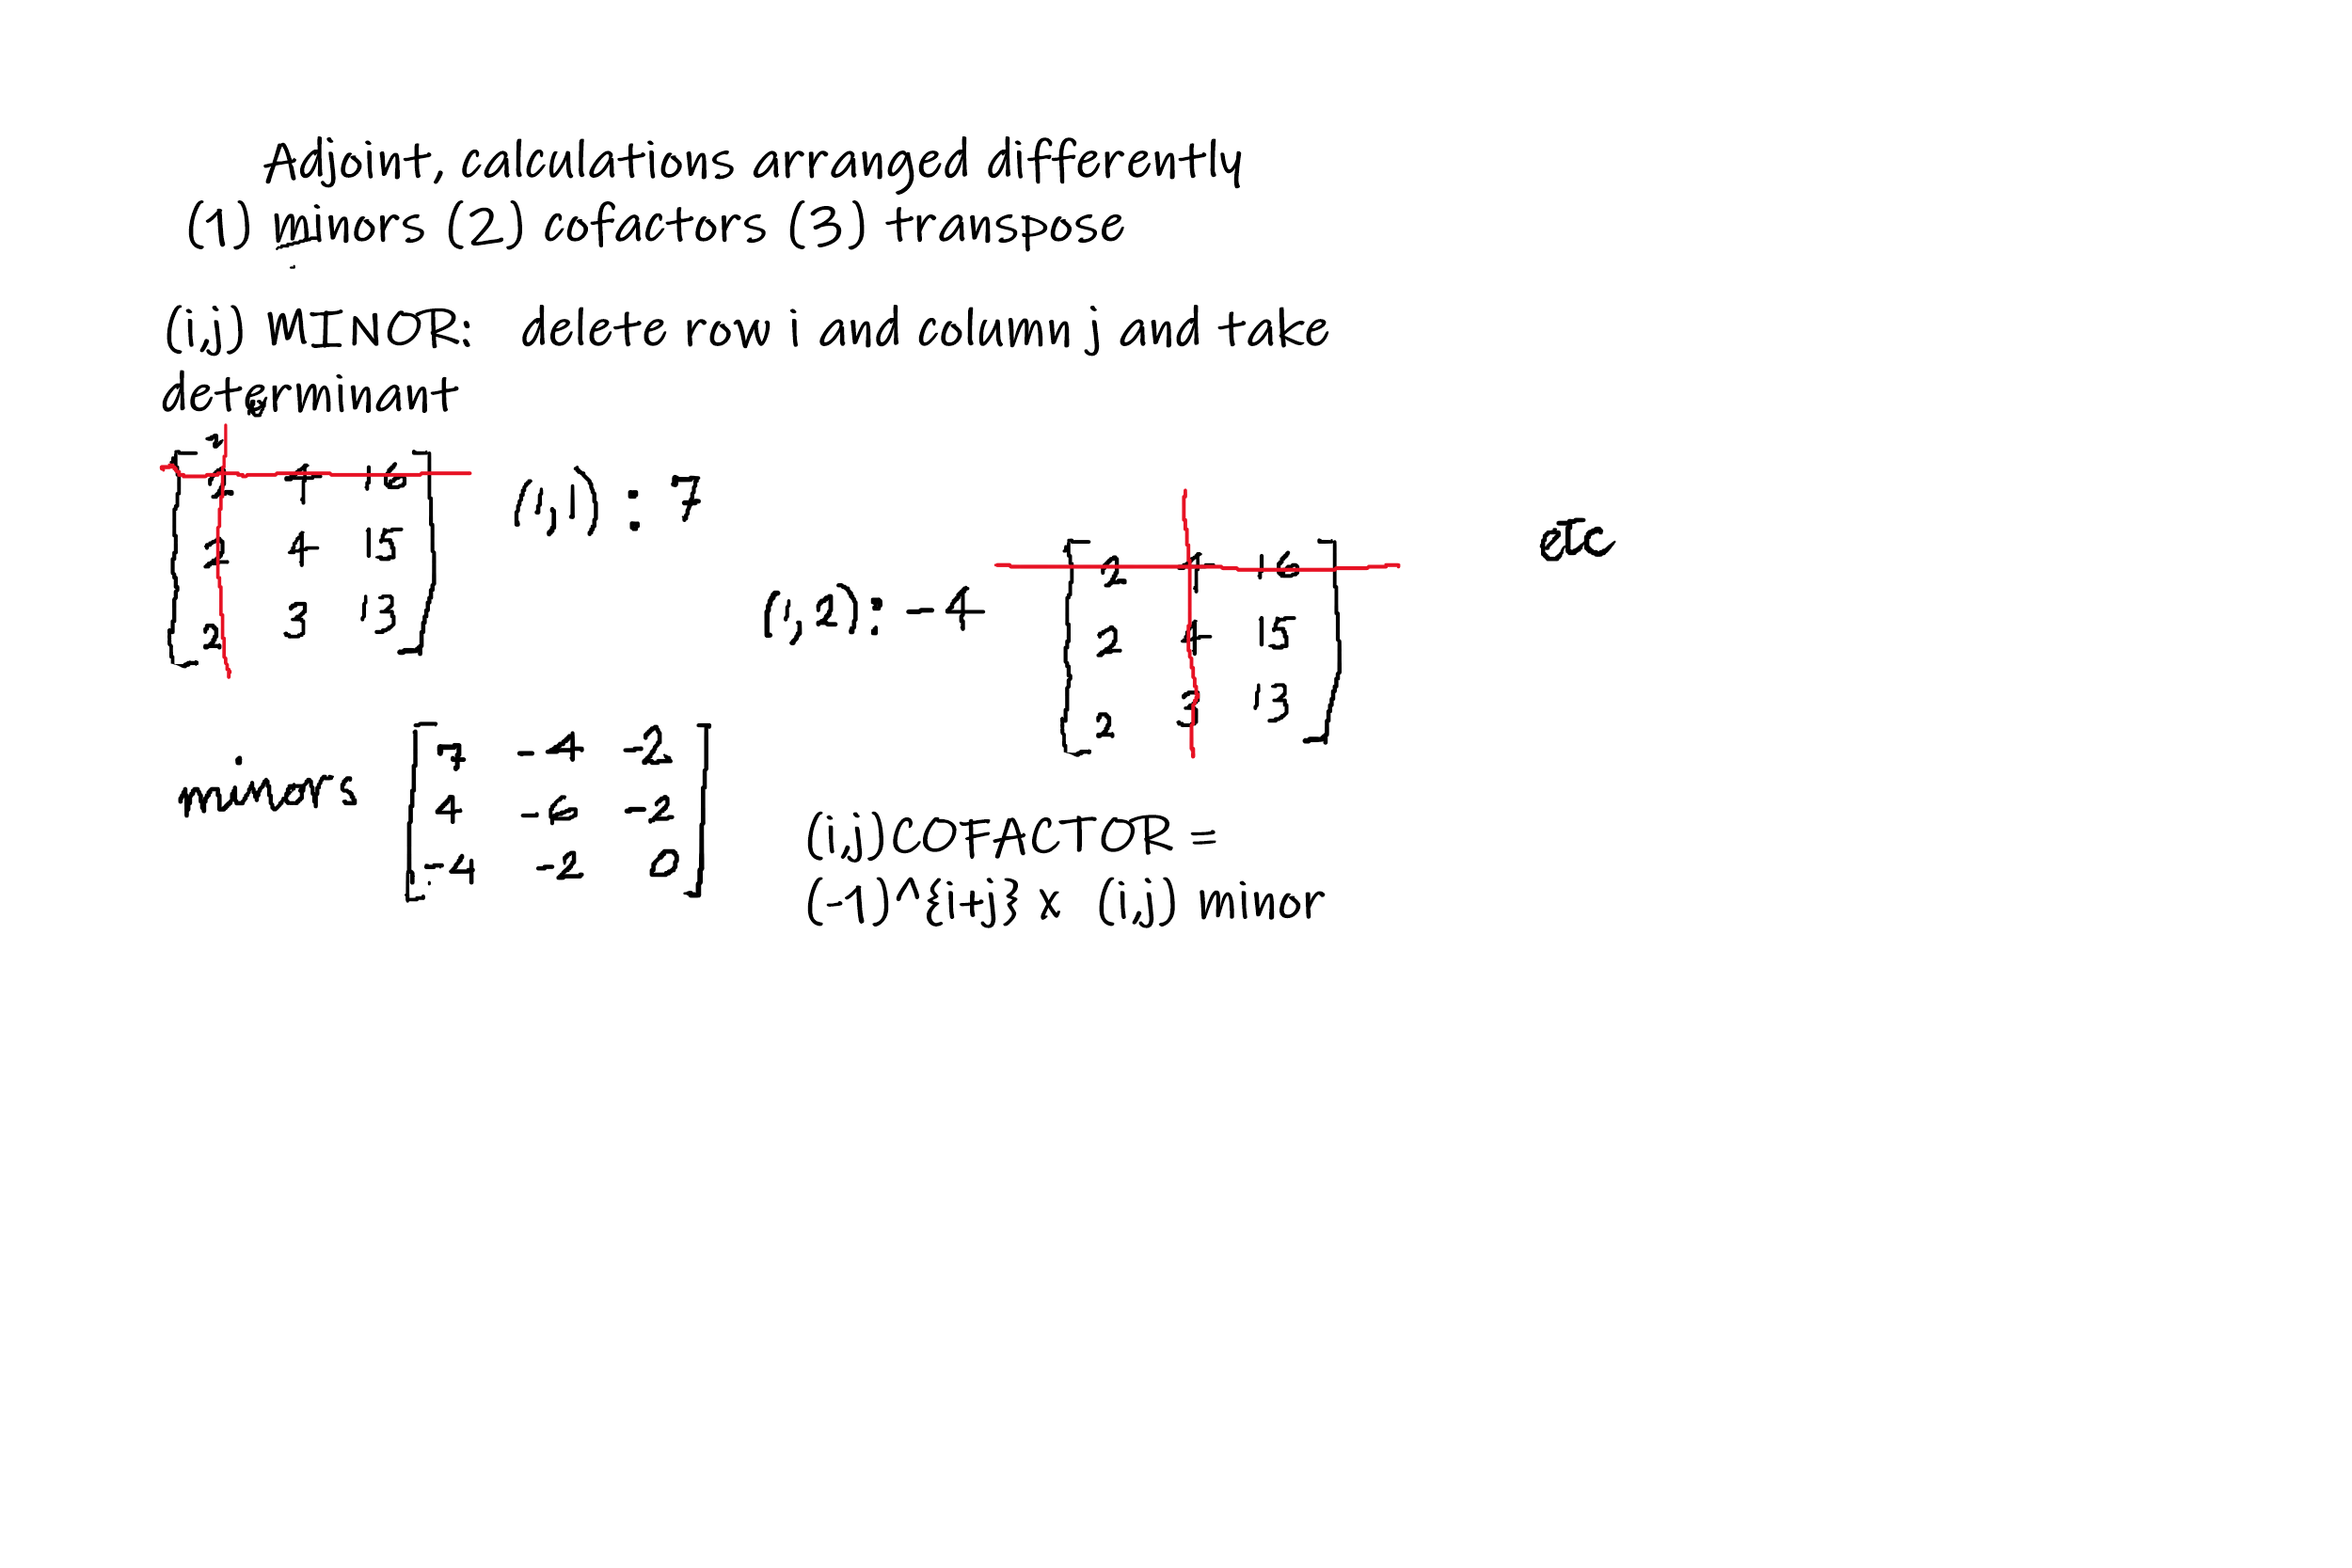 Adjoint, calculations arranged differently
(1) minors (2) cofactors (3) transpose
(i,j) MINOR: delete row i and column j and take
determinant
2 4 16
2 4 15
2 3 13
(1,1) : 7
(1,2): -4
2 4 16
2 4 15
2 3 13
etc
minors
7 -4 -2
4 -6 -2
-4 -2 0
(i,j)COFACTOR =
(-1)^{i+j} x (i,j) minor